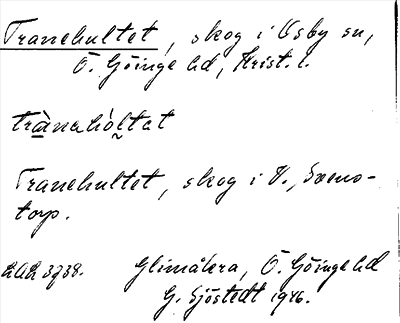 Tranehultet, skog i Osby sn,
Ö. Göinge hd, Krist. l.
trànahòltat
Tranehultet, skog i V., Svens-
torp.
LAL 3738.
Glimåkra, Ö. Göinge hd
G. Sjöstedt 1946.